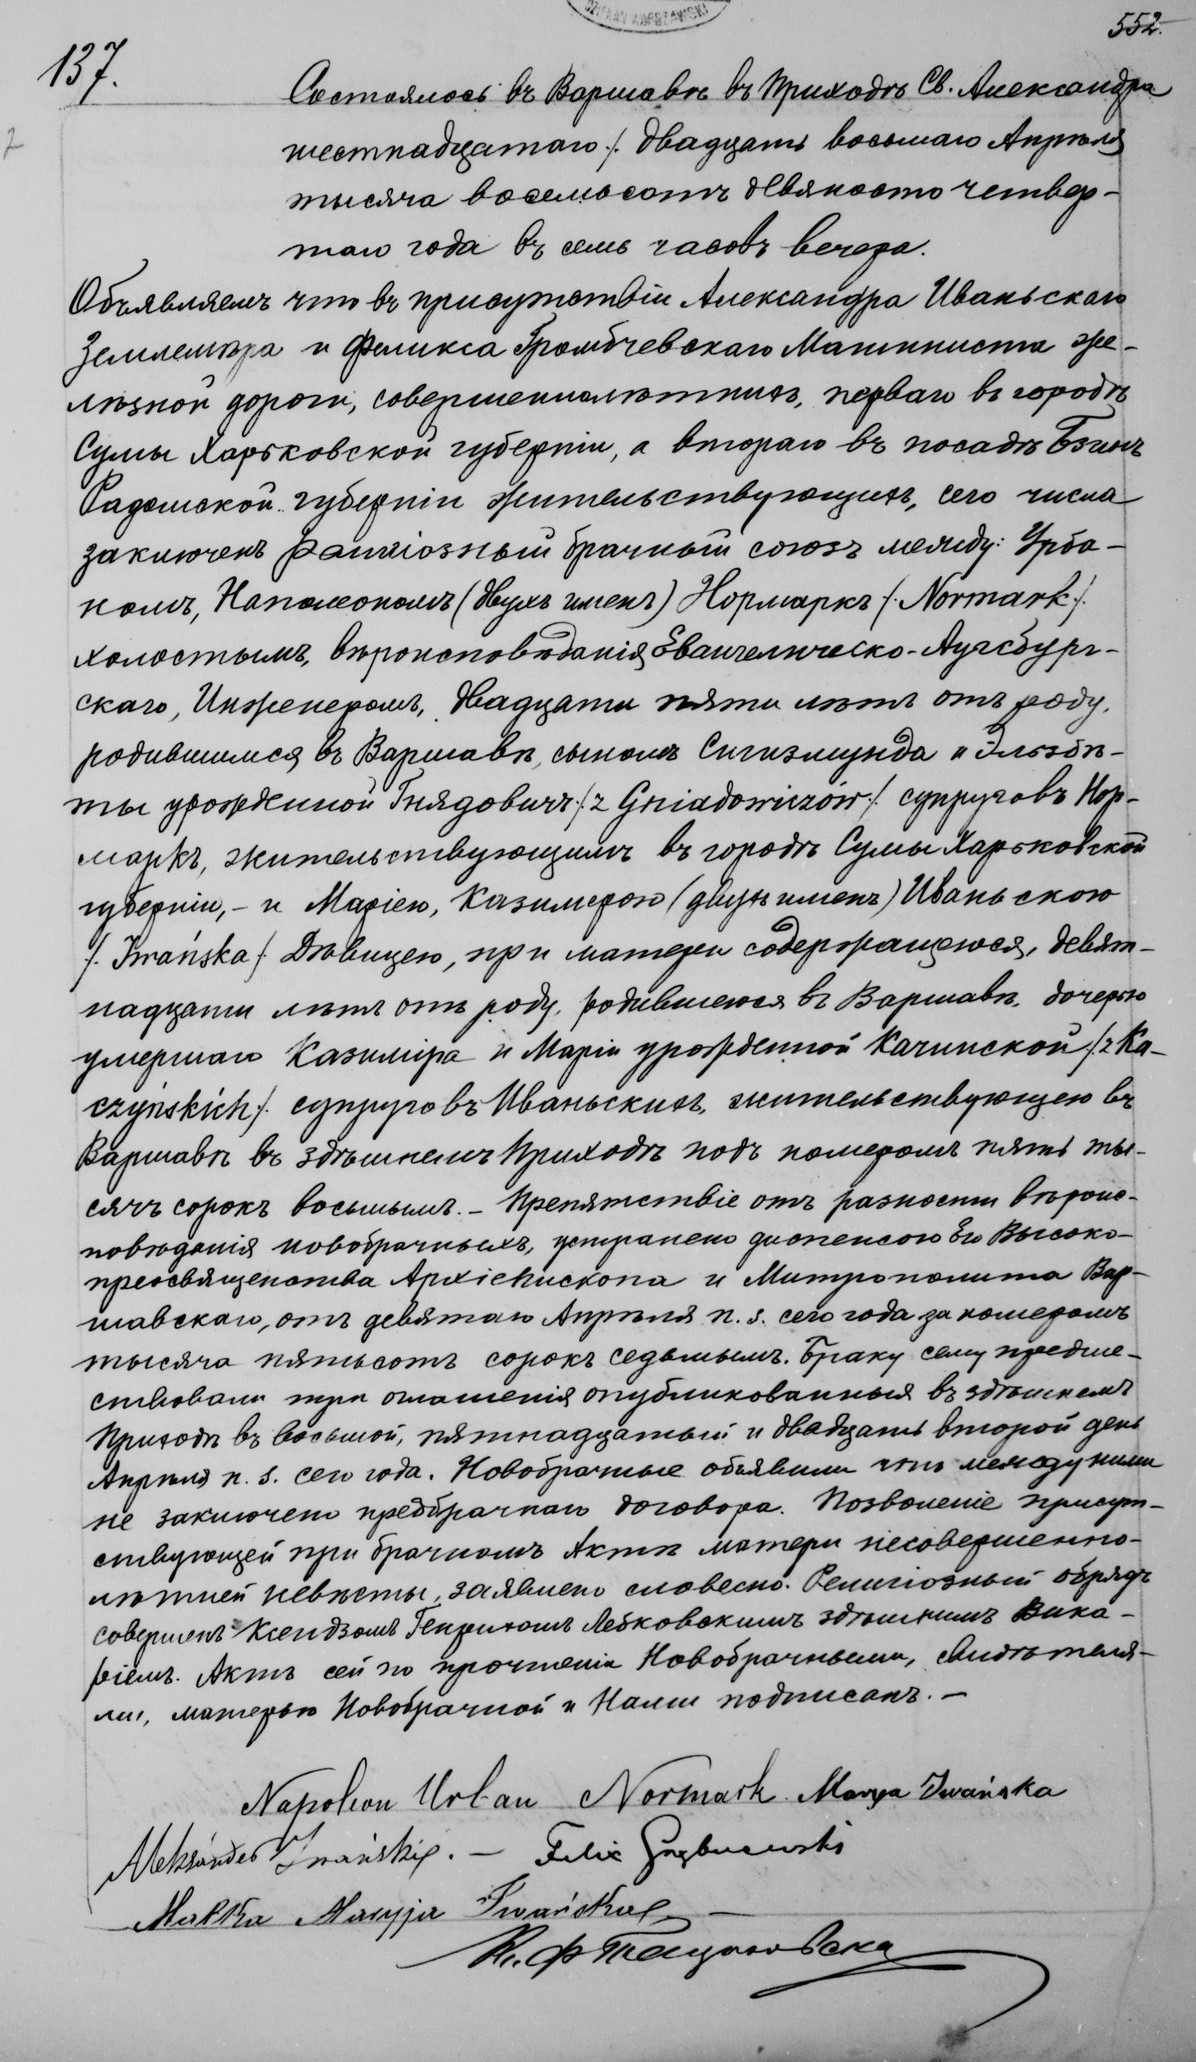 DZIEKAN WARSZAWSKI
552.
137.
2
Состоялось въ Варшавѣ въ Приходѣ Св. Александра
шестнадцатаго /. двадцать восьмаго Апрѣля
тысяча восемьсотъ девяносто четвер-
таго года въ семь часовъ вечера.
Объявляемъ что въ присутствіи Александра Иваньскаго
Землемѣра и Феликса Громбчевскаго Машиниста же-
лѣзной дороги, совершеннолѣтнихъ, перваго въ городѣ
Сумы Харьковской губерніи, а втораго въ посадѣ Бзинъ
Радомской губерніи жительствующихъ, сего числа
заключенъ религіозный брачный союзъ между: Урба-
номъ, Наполеономъ (двухъ именъ) Нормаркъ /. Normark /.
холостымъ, вѣроисповѣданія Евангелическо-Аугсбург-
скаго, Инженеромъ, двадцати пяти лѣтъ отъ роду,
родившимся въ Варшавѣ, сыномъ Сигизмунда и Эльзбѣ-
ты урожденной Гнядовичъ /z Gniadowiczów/. супруговъ Нор-
маркъ, жительствующимъ въ городѣ Сумы Харьковской
губерніи, - и Маріею, Казимерою (двухъ именъ) Иваньскою
/. Iwańska /. Дѣвицею, при матери содержащеюся, девят-
надцати лѣтъ отъ роду, родившеюся въ Варшавѣ, дочерью
умершаго Казиміра и Маріи урожденной Качинской /. z Ka-
czyńskich /. супруговъ Иваньскихъ, жительствующею въ
Варшавѣ въ здѣшнемъ Приходѣ подъ номеромъ пять ты-
сячъ сорокъ восьмымъ. - Препятствіе отъ разности вѣроис-
повѣданія новобрачныхъ, устранено диспенсою Его Высоко-
преосвященства Архіепископа и Митрополита Вар-
шавскаго, отъ девятаго Апрѣля n. s. сего года за номеромъ
тысяча пятьсотъ сорокъ седьмымъ. Браку сему предше-
ствовали три оглашенія опубликованныя въ здѣшнемъ
Приходѣ въ восьмой, пятнадцатый и двадцать второй день
Апрѣля n. s. сего года. Новобрачные объявили что между ними
не заключено предбрачнаго договора. Позволеніе присут-
ствующей при брачномъ Актѣ матери несовершенно-
лѣтней невѣсты, заявлено словесно. Религіозный обрядъ
совершенъ Ксендзомъ Генрихомъ Лебковскимъ здѣшнимъ Вика-
ріемъ. Актъ сей по прочтеніи Новобрачными, свидѣтеля-
ми, матерью Новобрачной и Нами подписанъ. -
Napoleon Urban Normark. Marya Iwańska
Aleksander Iwański. - Felix Grąbczewski
Matka Maryja Iwańska